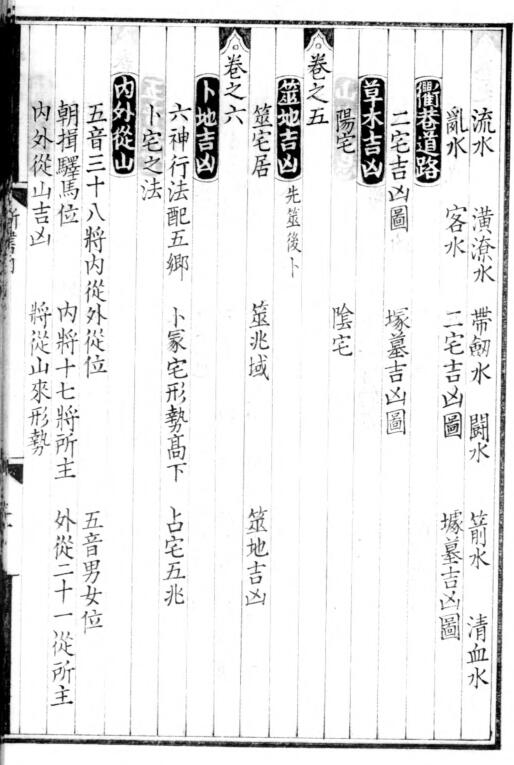 流水 潢潦水 帶劒水 鬪水 箭水 清血水
亂水 客水 二宅吉凶圖 墟墓吉凶圖
衢巷道路
二宅吉凶圖 塚墓吉凶圖
草木吉凶
陽宅 陰宅
卷之五
筮地吉凶 先筮後卜
筮宅居 筮兆域 筮地吉凶
卷之六
卜地吉凶
六神行法配五鄉 卜冢宅形勢髙下 占宅五兆
卜宅之法
內外從山
五音三十八將內從外從位 五音男女位
朝揖驛馬位 內將十七將所主 外從二十一從所主
內外從山吉凶 將從山來形勢